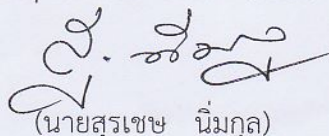 (นายสุรเชษ นิ่มกุล)